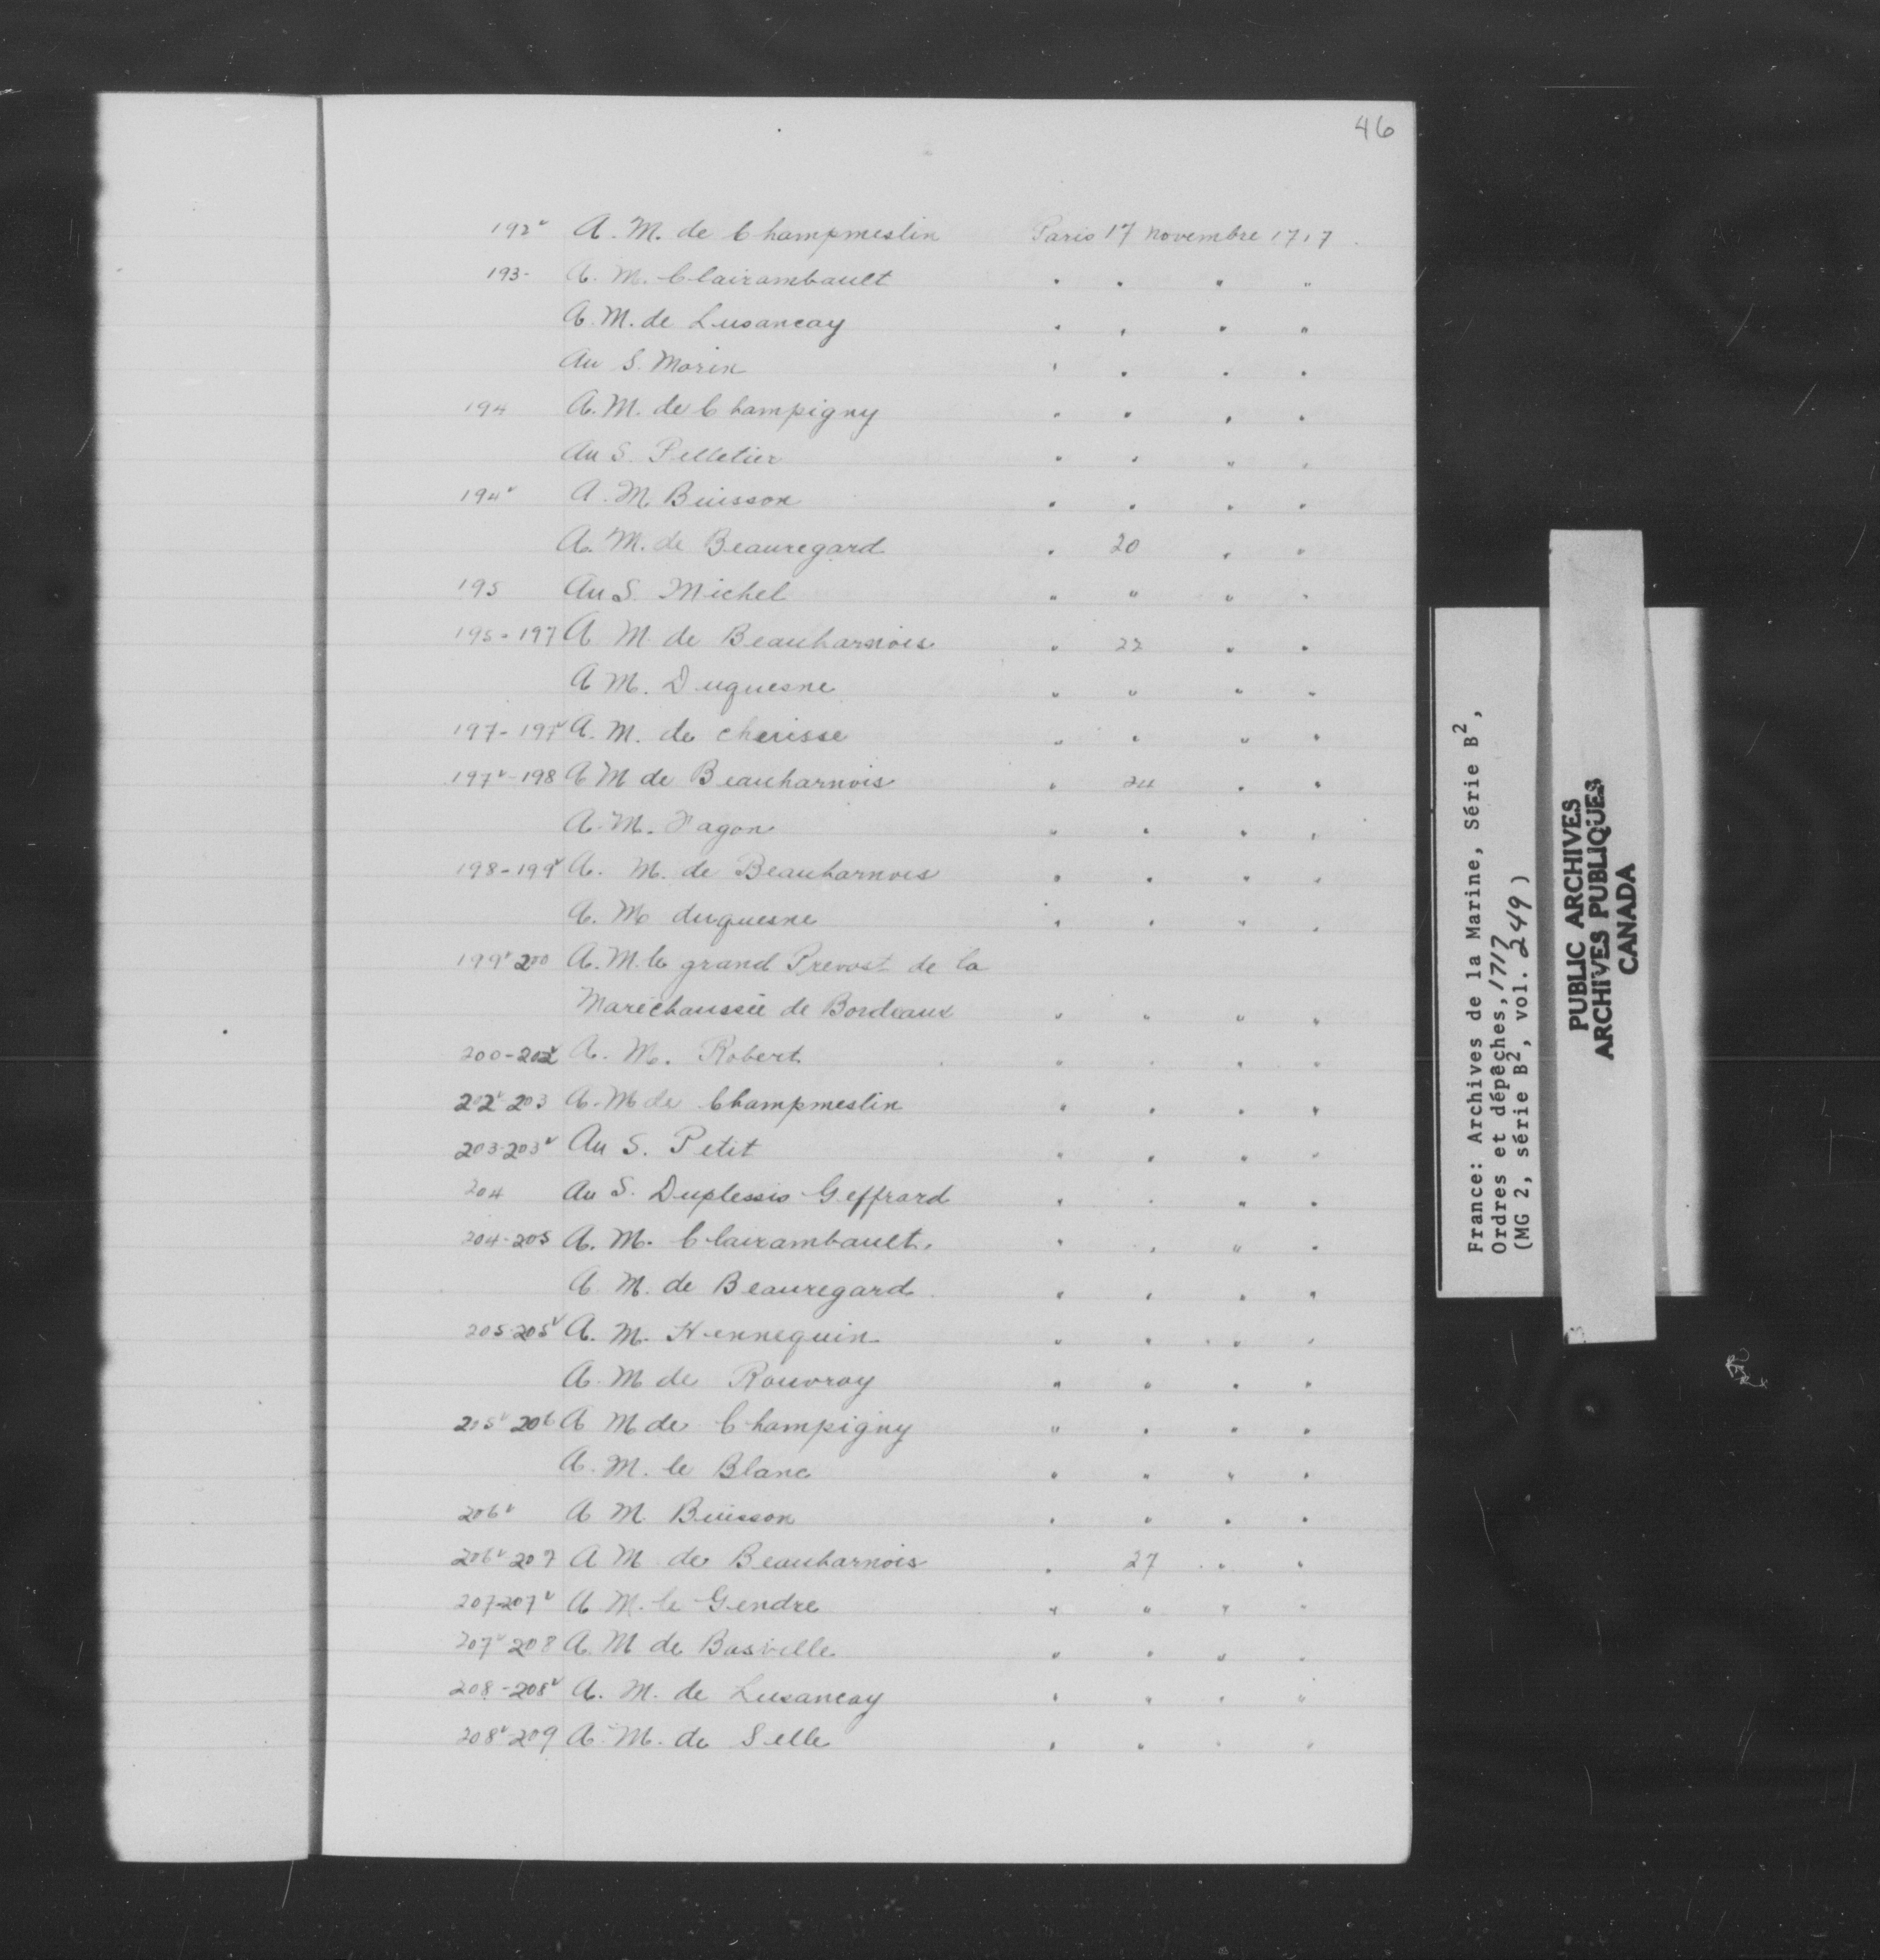 46
192v A. M. de Champmeslin Paris 17 novembre 1717.
193- A. M. Clairambault " " " "
A. M. de Lusancay " " " "
Au S. Morin " " " "
194 A. M. de Champigny " " " "
Au S. Pelletier " " " "
194v A. M Buisson " " " "
A. M. de Beauregard " 20 " "
195 Au S. Michel " " " "
195-197 A M. de Beauharnois " 22 " "
A M. Duquesne " " " "
197-197v A. M. de Cherisse " " " "
197v-198 A M de Beauharnois " 24 " "
A. M. Fagon " " " "
198-199v A. M. de Beauharnois " " " "
A. M duquesne " " " "
199v 200 A. M. le grand Prevost de la
Maréchaussée de Bordeaux " " " "
200-202v A. M. Robert " " " "
202v 203 A. M de Champmeslin " " " "
203-203v Au S. Petit " " " "
204 Au S. Duplessis Geffrard " " " "
204-205 A. M. Clairambault. " " " "
A M. de Beauregard. " " " "
205-205v A. M. Hennequin " " " "
A. M de Rouvroy " " " "
205v 206 A M de Champigny " " " "
A. M. le Blanc " " " "
206v A M. Buisson " " " "
206v 207 A M de Beauharnois " 27 " "
207-207v A M. le Gendre " " " "
207v 208 A. M de Basville " " " "
208-208v A. M. de Lusancay " " " "
208v 209 A. M. de Selle " " " "
France: Archives de la Marine, Série B2,
Ordres et dépêches, 1717
(MG 2, série B2, vol. 249)
PUBLIC ARCHIVES
ARCHIVES PUBLIQUES
CANADA